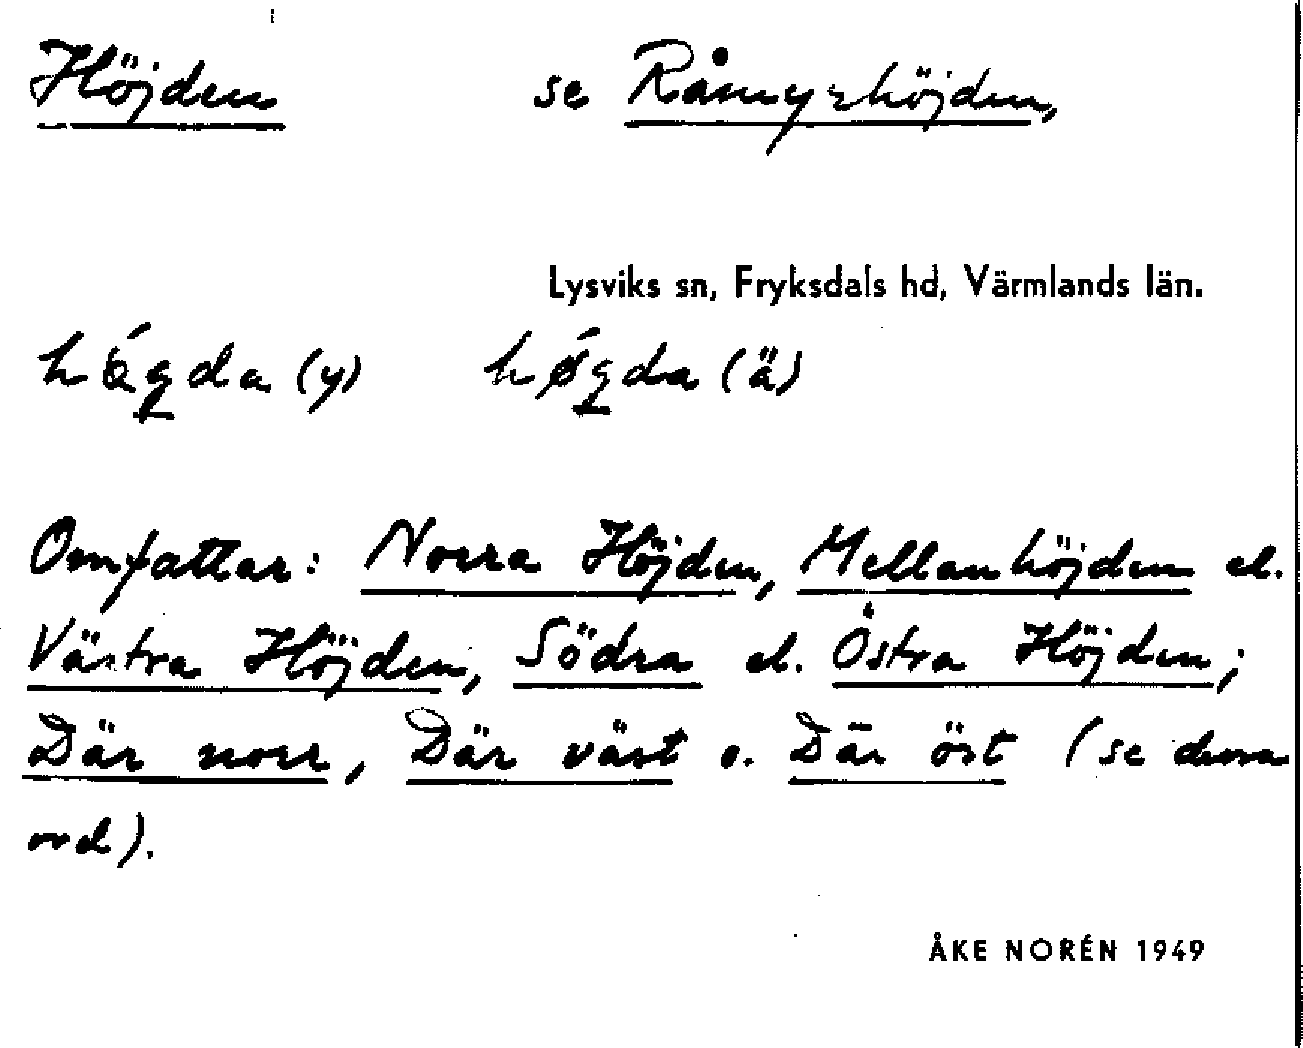 Höjden se Råmyrhöjden,
Lysviks sn, Fryksdals hd, Värmlands län.
(y) (ä)
Omfattar: Norra Höjden, Mellanhöjden el.
Västra Höjden, Södra el. Östra Höjden;
Där norr, Där väst o. Där öst (se dessa
ord).
ÅKE NORÉN 1949